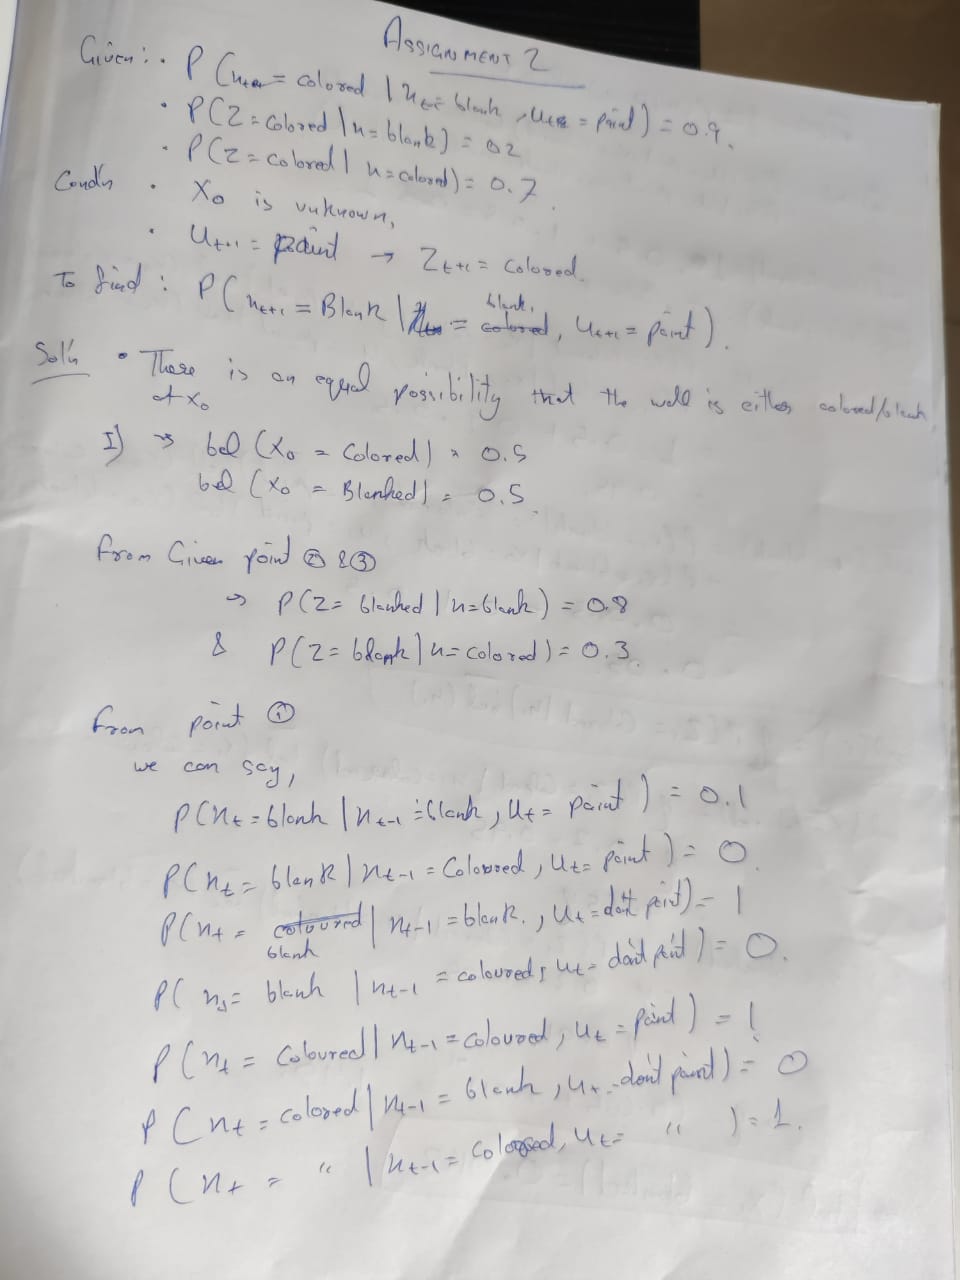 ASSIGNMENT 2
Given :. P(xt+1 = colored | xt = blank, ut+1 = paint) = 0.9.
• P(Z = Colored | x = blank) = 0.2
• P(Z = Colored | x = colored) = 0.7.
Cond'n • X0 is unknown,
• Ut+1 = paint → Zt+1 = Colored.
To find : P(xt+1 = Blank | = blank, colored, ut+1 = paint).
Sol'n • There is an equal possibility that the wall is either colored/blank
at X0
I) → bel (X0 = Colored) = 0.5
bel (X0 = Blanked) = 0.5
From Given point ② & ③
→ P(Z = blanked | x = blank) = 0.8
& P(Z = blank | x = colored) = 0.3
from point ①
we can say,
P(xt = blank | xt-1 = blank, Ut = paint) = 0.1
P(xt = blank | xt-1 = Coloured, Ut = paint) = 0
P(xt = coloured blank | xt-1 = blank., Ut = don't paint) = 1
P(xt = blank | xt-1 = coloured, ut = don't paint) = 0.
P(xt = Coloured | xt-1 = coloured, Ut = paint) = 1
P(xt = colored | xt-1 = blank, ut = don't paint) = 0
P(xt = " | xt-1 = colored, Ut = " ) = 1.